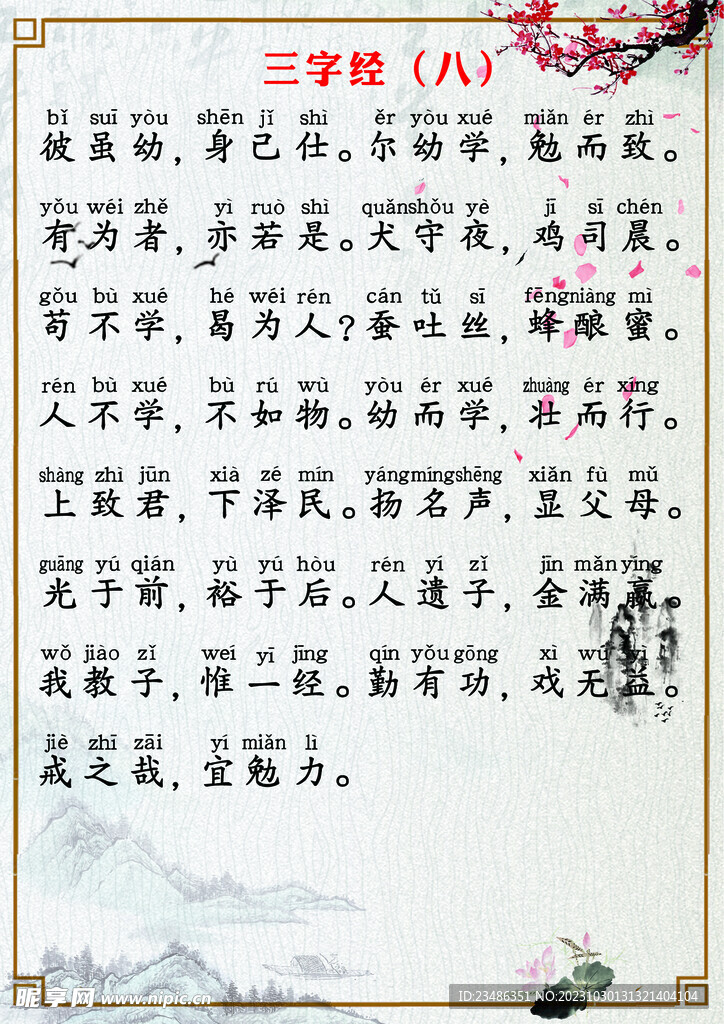 三字经（八）
bǐ suī yòu shēn jǐ shì ěr yòu xué miǎn ér zhì
彼虽幼，身己仕。尔幼学，勉而致。
yǒu wéi zhě yì ruò shì quǎn shǒu yè jī sī chén
有为者，亦若是。犬守夜，鸡司晨。
gǒu bù xué hé wéi rén cán tǔ sī fēng niàng mì
苟不学，曷为人？蚕吐丝，蜂酿蜜。
rén bù xué bù rú wù yòu ér xué zhuàng ér xíng
人不学，不如物。幼而学，壮而行。
shàng zhì jūn xià zé mín yáng míng shēng xiǎn fù mǔ
上致君，下泽民。扬名声，显父母。
guāng yú qián yù yú hòu rén yí zǐ jīn mǎn yíng
光于前，裕于后。人遗子，金满赢。
wǒ jiào zǐ weí yī jīng qín yǒu gōng xì wú yì
我教子，惟一经。勤有功，戏无益。
jiè zhī zāi yí miǎn lì
戒之哉，宜勉力。
昵享网 www.nipic.cn
ID:23486351 NO:20231030131321404104